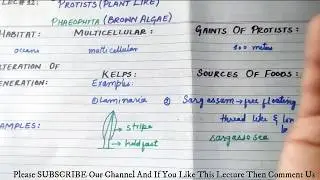 LEC#32 PROTISTS (PLANT LIKE)
PHAEOPHYTA (BROWN ALGAE)
HABITAT: MULTICELLULAR: GAINTS OF PROTISTS:
oceans multicellular 100 meter
ALTERATION OF KELPS: SOURCES OF FOODS:
GENERATION: Examples:
① Laminaria ② Sargassam → free floating
thread like &
EXAMPLES: → stripe sargasso sea
→ holdfast
Please SUBSCRIBE Our Channel And If You Like This Lecure Then Comment Us